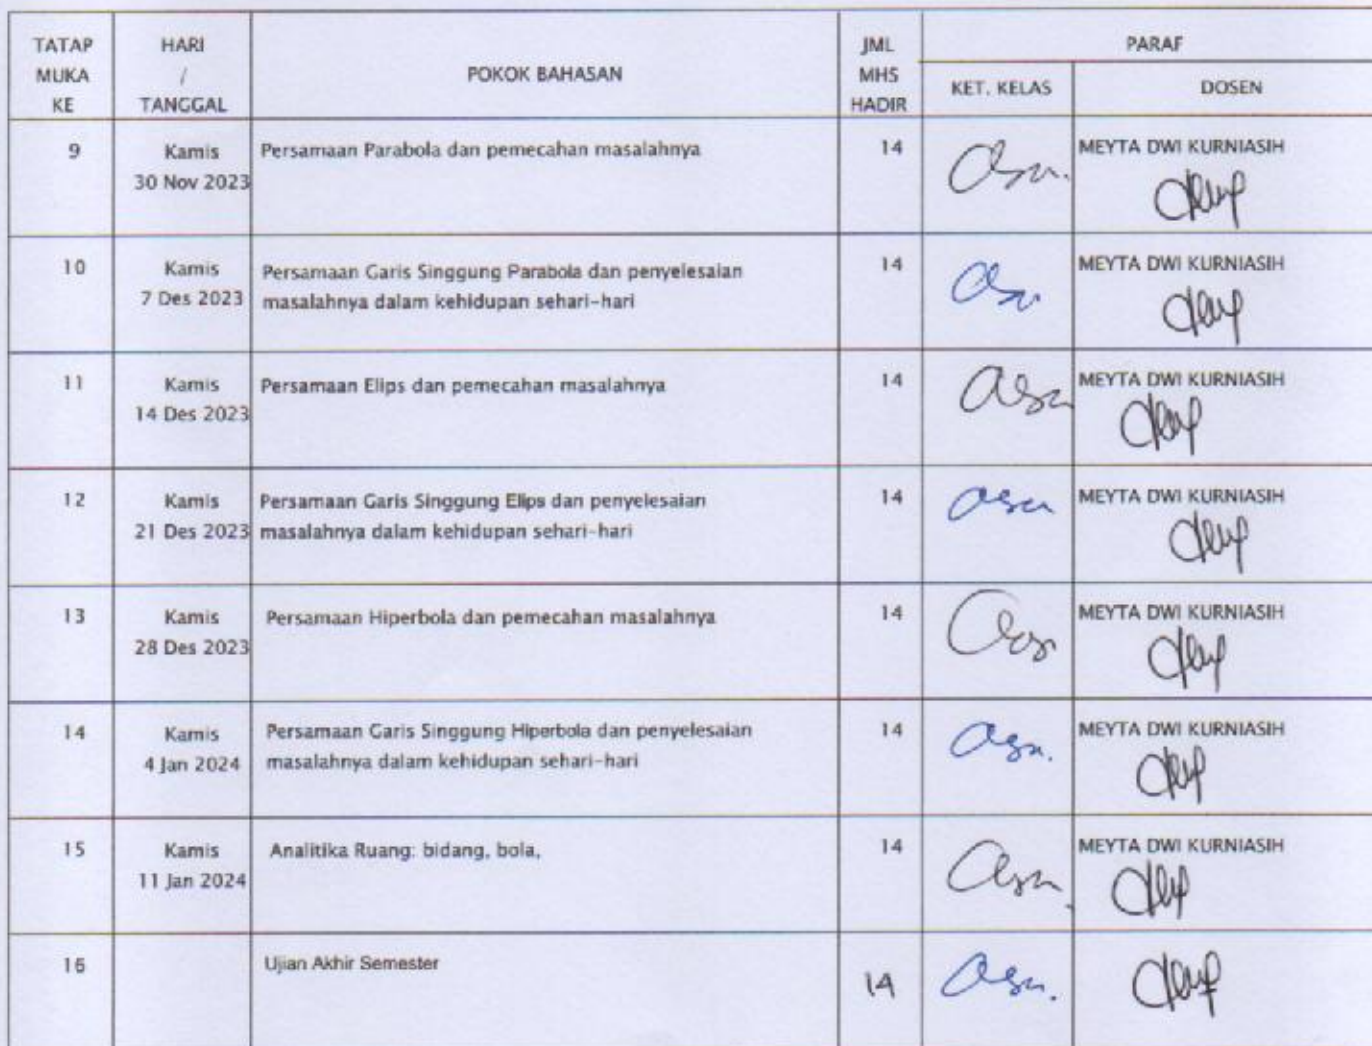 TATAP MUKA KE
HARI / TANGGAL
POKOK BAHASAN
JML MHS HADIR
PARAF
KET. KELAS
DOSEN
9
Kamis
30 Nov 2023
Persamaan Parabola dan pemecahan masalahnya
14
MEYTA DWI KURNIASIH
10
Kamis
7 Des 2023
Persamaan Garis Singgung Parabola dan penyelesaian
masalahnya dalam kehidupan sehari-hari
14
MEYTA DWI KURNIASIH
11
Kamis
14 Des 2023
Persamaan Elips dan pemecahan masalahnya
14
MEYTA DWI KURNIASIH
12
Kamis
21 Des 2023
Persamaan Garis Singgung Elips dan penyelesaian
masalahnya dalam kehidupan sehari-hari
14
MEYTA DWI KURNIASIH
13
Kamis
28 Des 2023
Persamaan Hiperbola dan pemecahan masalahnya
14
MEYTA DWI KURNIASIH
14
Kamis
4 Jan 2024
Persamaan Garis Singgung Hiperbola dan penyelesaian
masalahnya dalam kehidupan sehari-hari
14
MEYTA DWI KURNIASIH
15
Kamis
11 Jan 2024
Analitika Ruang: bidang, bola,
14
MEYTA DWI KURNIASIH
16
Ujian Akhir Semester
14